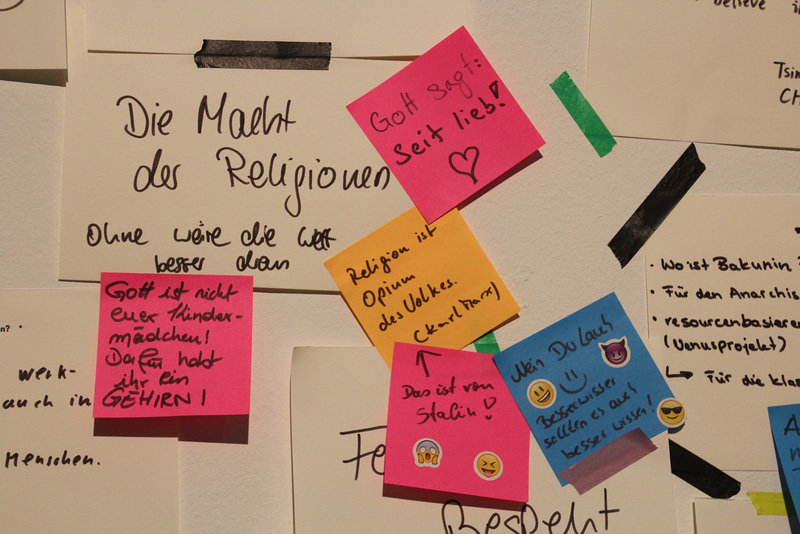 Die Macht
der Religionen
Ohne wäre die Welt
besser dran
Gott sagt:
Seit lieb!
Religion ist
Opium
des Volkes.
(Karl Marx)
Gott ist nicht
euer Kinder-
mädchen!
Dafür habt
ihr ein
GEHIRN!
Das ist von
Stalin!
Nein Du Lauch
Besserwisser
sollten es auch
besser wissen!
believe
Tsin
CH
• Wo ist Bakunin?
• Für den Anarchis
• resourcenbasieren
(Venusprojekt)
Für die kla
werk-
auch in
Menschen.
Fe
Respekt